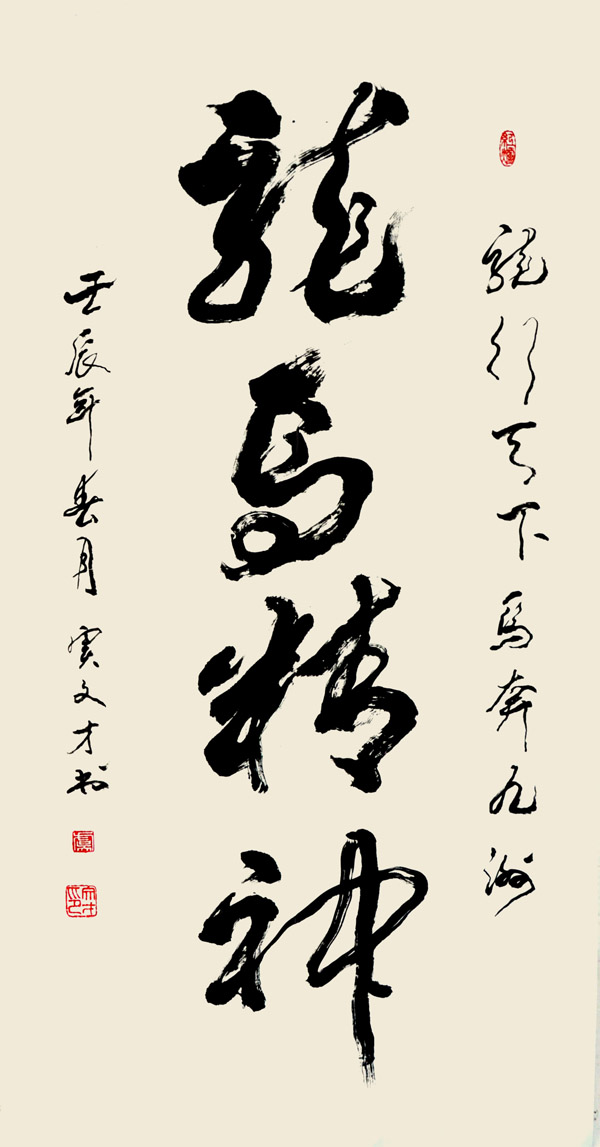 龍行天下馬奔九洲
龍馬精神
壬辰年春月 文才书